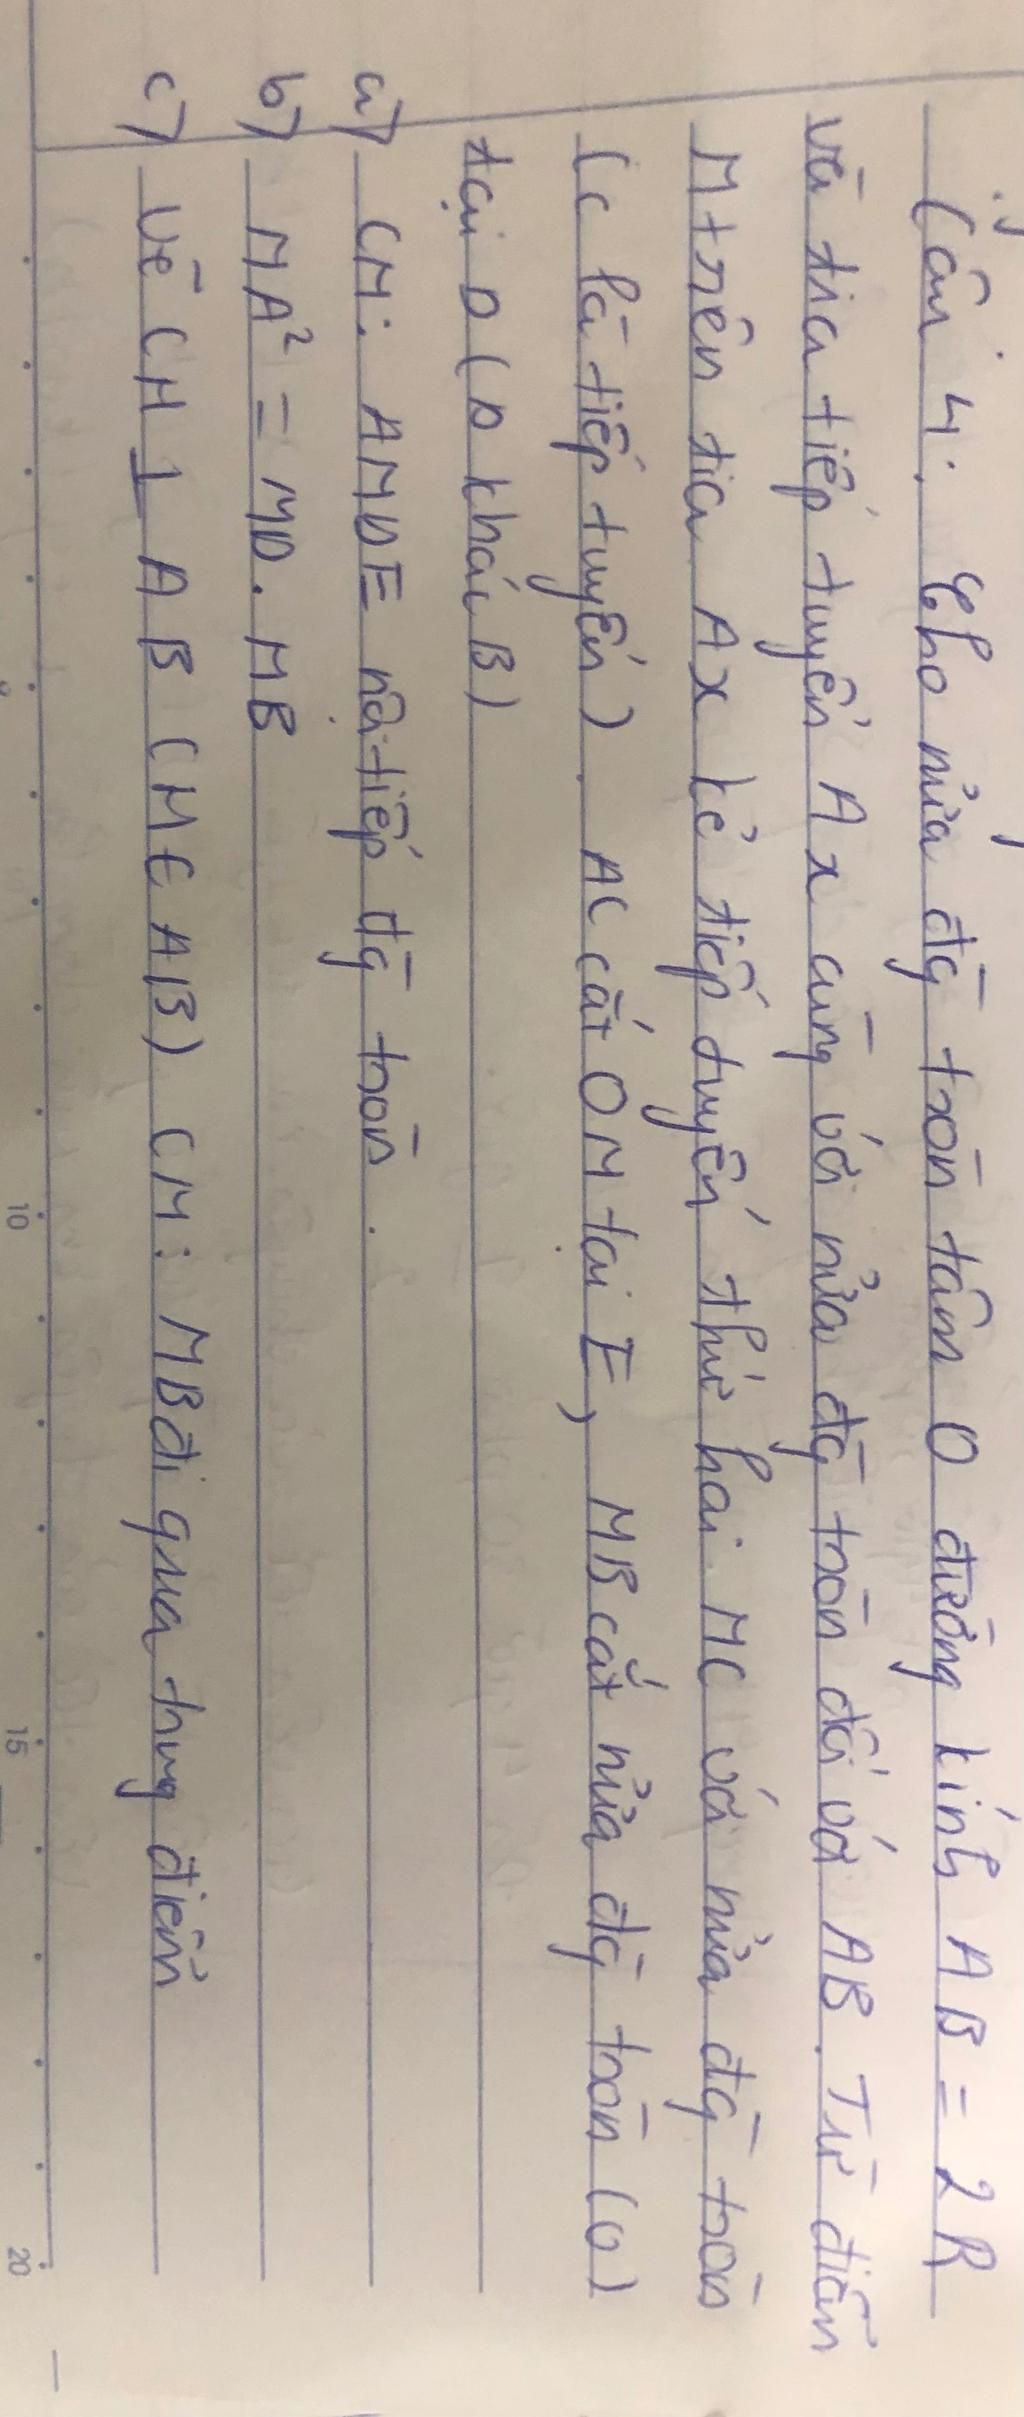 Câu 4: Cho nửa đg tròn tâm O đường kính AB = 2R
và tia tiếp tuyến Ax cùng với nửa đg tròn đối với AB. Từ điểm
M trên tia Ax kẻ tiếp tuyến thứ hai MC với nửa đg tròn
(C là tiếp tuyến). AC cắt OM tại E, MB cắt nửa đg tròn (O)
tại D (D khác B)
a) CM: AMDE nội tiếp đg tròn.
b) MA² = MD. MB
c) Vẽ CH ⊥ AB (H ∈ AB) CM: MB đi qua trung điểm
10
15
20